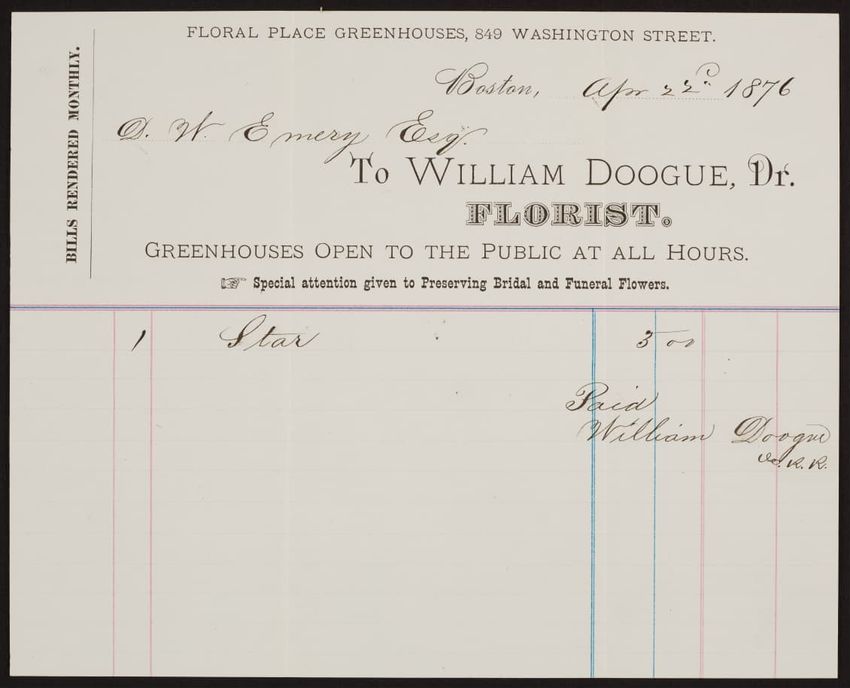 FLORAL PLACE GREENHOUSES, 849 WASHINGTON STREET.
BILLS RENDERED MONTHLY.
Boston, Apr 22d. 1876
D. W. Emery Esq.
To WILLIAM DOOGUE, Dr.
FLORIST.
GREENHOUSES OPEN TO THE PUBLIC AT ALL HOURS.
☞ Special attention given to Preserving Bridal and Funeral Flowers.
1 Star 5 00
Paid
William Doogue
R. R.